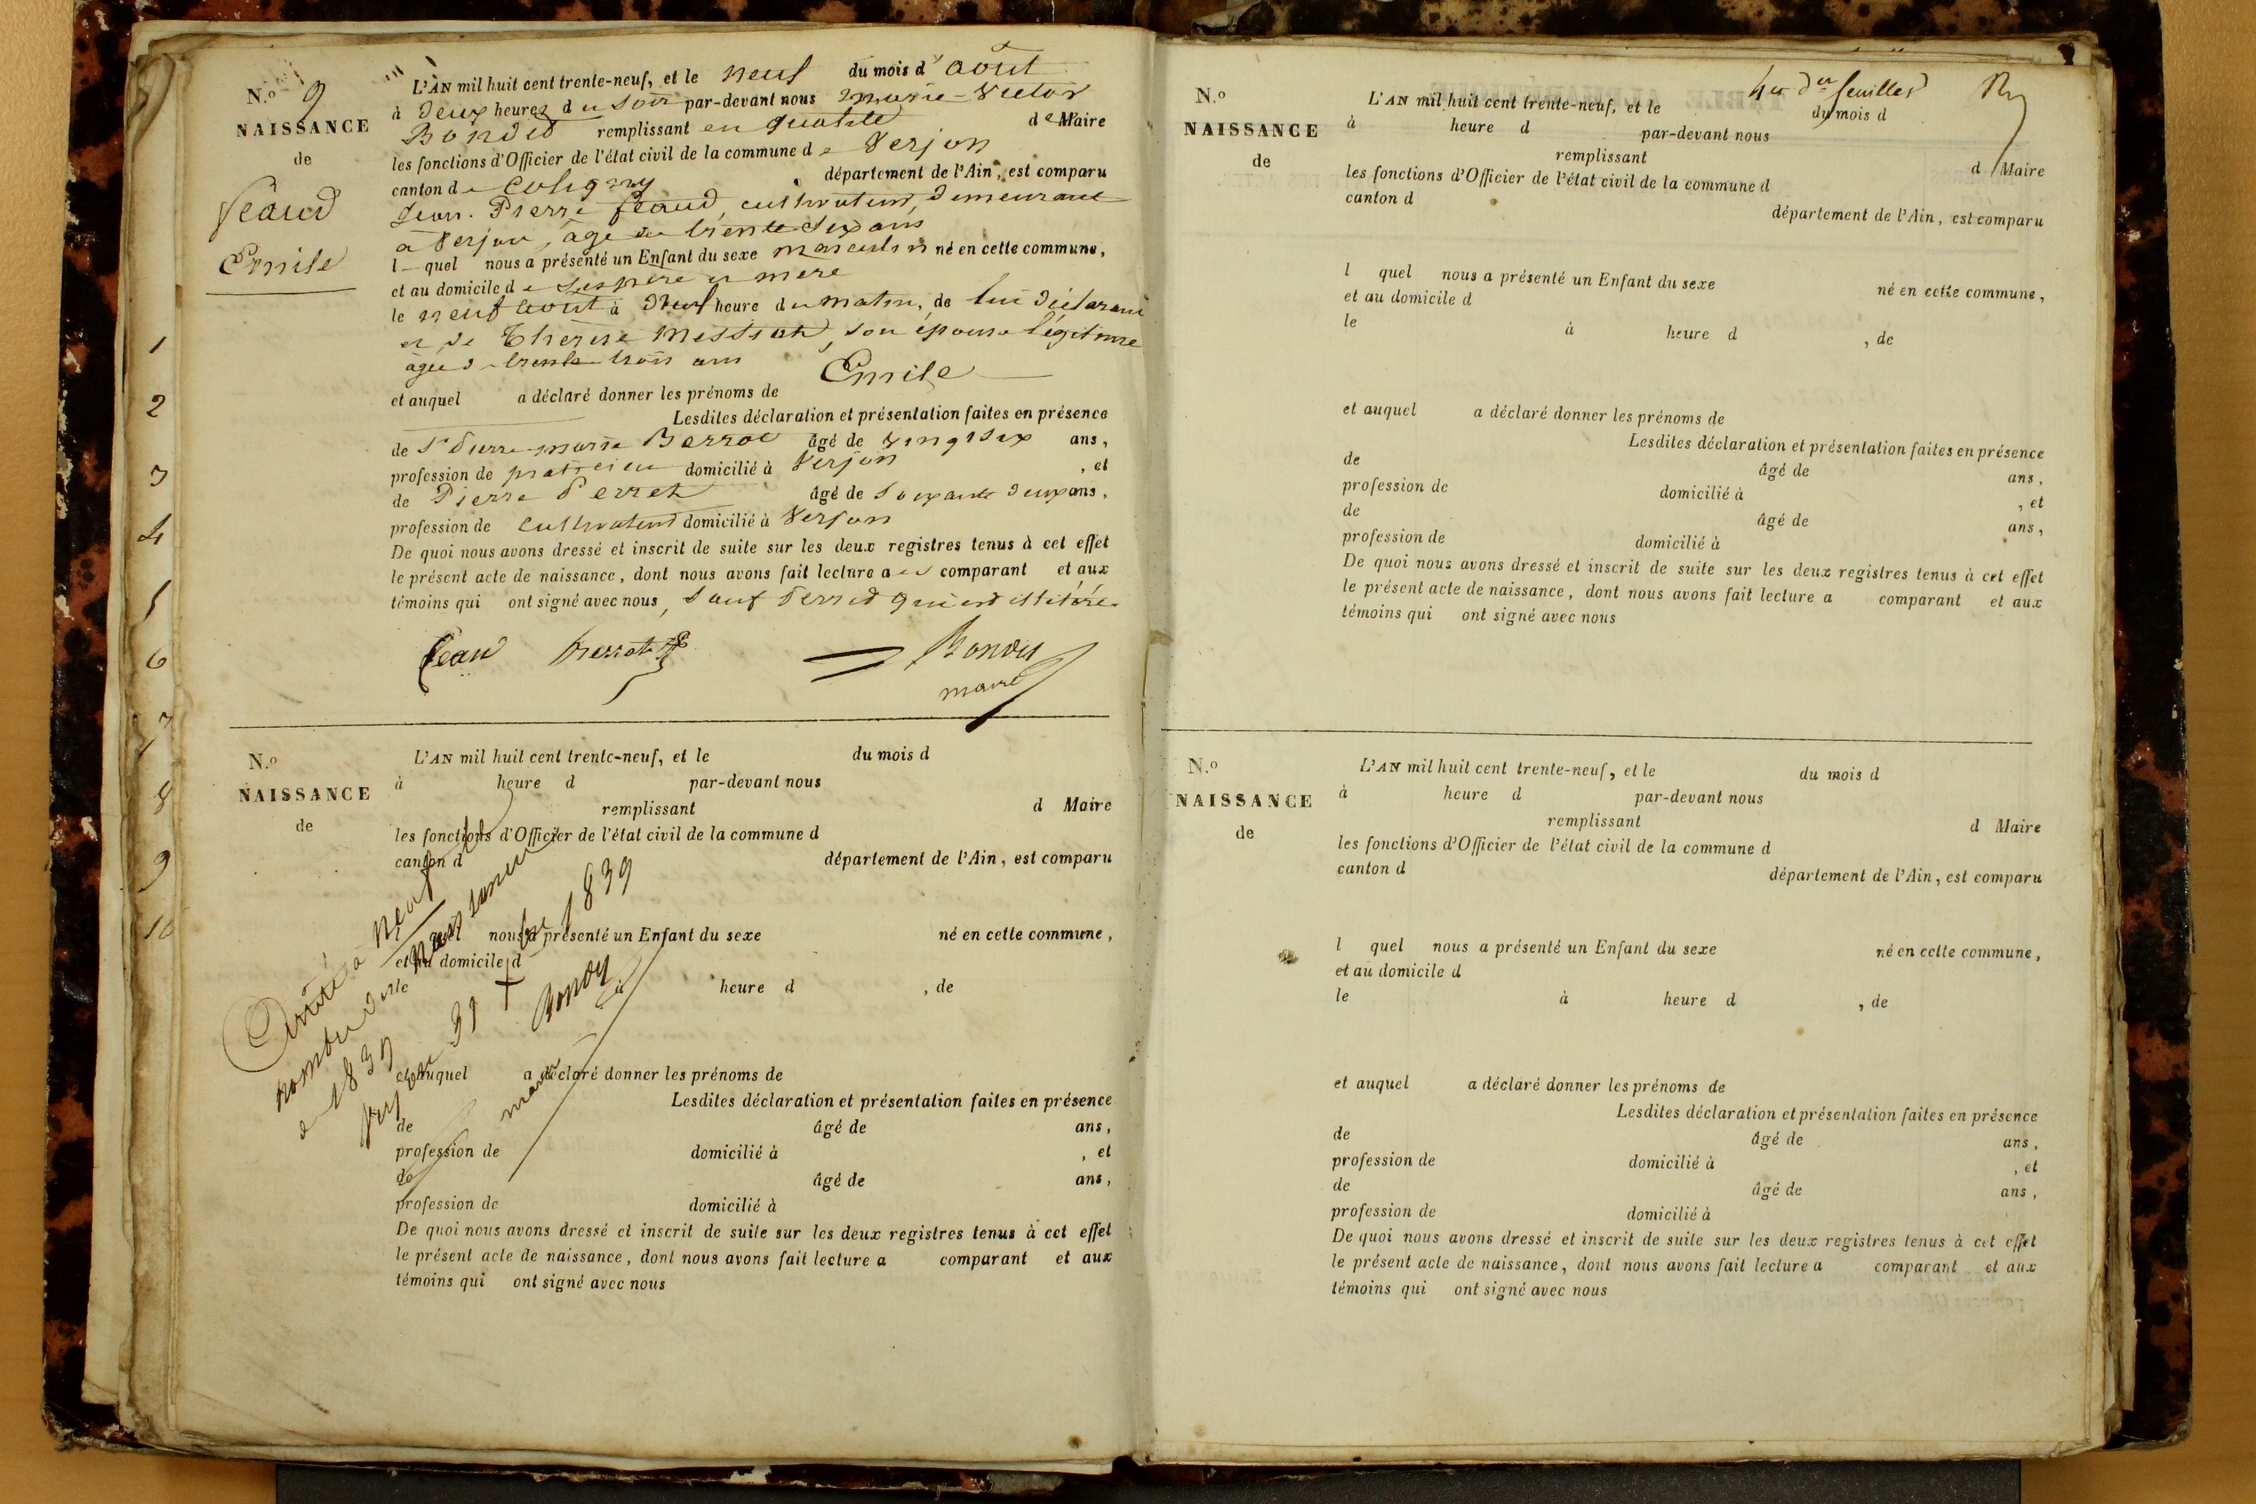 N.o 9
NAISSANCE
de
féaud
Emile
1
2
3
4
5
6
7
8
9
10
L'AN mil huit cent trente-neuf, et le neuf du mois d'août
à deux heures du soir par-devant nous marie-Victor
Bondet remplissant en qualité de Maire
les fonctions d'Officier de l'état civil de la commune de Verjon
canton de Coligny département de l'Ain, est comparu
Jean-Pierre féaud, cultivateur, demeurant
à Verjon, âgé de trente six ans
l quel nous a présenté un Enfant du sexe masculin né en cette commune,
et au domicile de ses père et mère
le neuf août à neuf heure du matin, de lui déclarant
et de Thérèse Messiat, son épouse légitime
âgée de trente trois ans
et auquel a déclaré donner les prénoms de Emile
Lesdites déclaration et présentation faites en présence
de Sr Pierre-marie âgé de vingt six ans,
profession de praticien domicilié à Verjon, et
de Pierre Perret âgé de soixante deux ans,
profession de cultivateur domicilié à Verjon
De quoi nous avons dressé et inscrit de suite sur les deux registres tenus à cet effet
le présent acte de naissance, dont nous avons fait lecture aux comparant et aux
témoins qui ont signé avec nous, sauf Perret qui est illitéré
féau Bondet
maire
N.o
NAISSANCE
de
L'AN mil huit cent trente-neuf, et le du mois d
à heure d par-devant nous
remplissant d Maire
les fonctions d'Officier de l'état civil de la commune d
canton d département de l'Ain, est comparu
l quel nous a présenté un Enfant du sexe né en cette commune,
et au domicile d
le à heure d , de
et auquel a déclaré donner les prénoms de
Lesdites déclaration et présentation faites en présence
de âgé de ans,
profession de domicilié à , et
de âgé de ans,
profession de domicilié à
De quoi nous avons dressé et inscrit de suite sur les deux registres tenus à cet effet
le présent acte de naissance, dont nous avons fait lecture a comparant et aux
témoins qui ont signé avec nous
Arrêté à neuf le
nombre des naissances
de 1839
31 Xbre 1839
Bondet
maire
N.o
NAISSANCE
de
feuillet
L'AN mil huit cent trente-neuf, et le du mois d
à heure d par-devant nous
remplissant d Maire
les fonctions d'Officier de l'état civil de la commune d
canton d département de l'Ain, est comparu
l quel nous a présenté un Enfant du sexe né en cette commune,
et au domicile d
le à heure d , de
et auquel a déclaré donner les prénoms de
Lesdites déclaration et présentation faites en présence
de âgé de ans,
profession de domicilié à , et
de âgé de ans,
profession de domicilié à
De quoi nous avons dressé et inscrit de suite sur les deux registres tenus à cet effet
le présent acte de naissance, dont nous avons fait lecture a comparant et aux
témoins qui ont signé avec nous
N.o
NAISSANCE
de
L'AN mil huit cent trente-neuf, et le du mois d
à heure d par-devant nous
remplissant d Maire
les fonctions d'Officier de l'état civil de la commune d
canton d département de l'Ain, est comparu
l quel nous a présenté un Enfant du sexe né en cette commune,
et au domicile d
le à heure d , de
et auquel a déclaré donner les prénoms de
Lesdites déclaration et présentation faites en présence
de âgé de ans,
profession de domicilié à , et
de âgé de ans,
profession de domicilié à
De quoi nous avons dressé et inscrit de suite sur les deux registres tenus à cet effet
le présent acte de naissance, dont nous avons fait lecture a comparant et aux
témoins qui ont signé avec nous